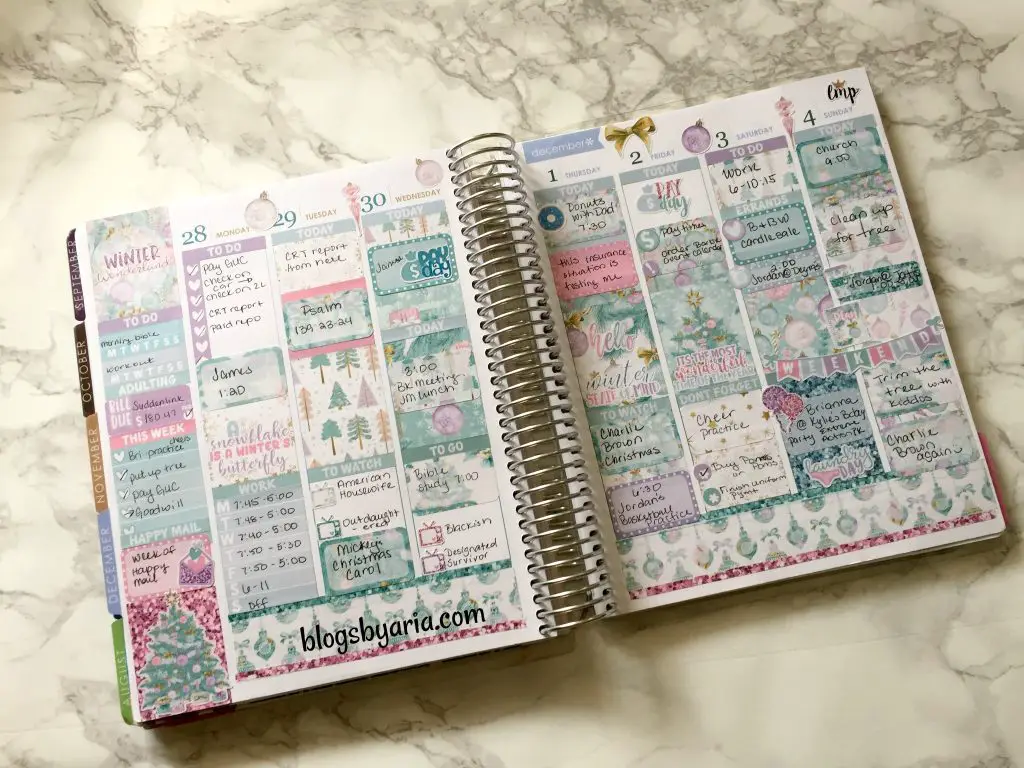 SEPTEMBER
OCTOBER
NOVEMBER
DECEMBER
AUGUST
WINTER
Wonderland
TO DO
morning bible
M T W T F S S
workout
M T W T F S S
ADULTING
BILL
DUE
Suddenlink
$ 180.47
THIS WEEK
cheer
Bri practice
put up tree
pay QUC
Goodwill
HAPPY MAIL
week of
Happy
mail
28
MONDAY
TO DO
pay QUC
check on
car
check on 2L
CRT report
Paid repo
James
1:20
A
snowflake
IS A WINTER'S
butterfly
WORK
7:45 - 5:00
7:45 - 5:00
7:40 - 5:00
7:50 - 5:30
7:50 - 5:00
6-11
Off
29
TUESDAY
TODAY
CRT report
from here
Psalm
139:23-24
TO WATCH
American
Housewife
Outdaught
ered
Mickey's
Christmas
Carol
30
WEDNESDAY
TODAY
James
PAY
day
TODAY
3:00
Bx meeting
jm lunch
TO GO
Bible
study 7:00
Blackish
Designated
Survivor
blogsbyaria.com
december*
1
THURSDAY
TODAY
Donuts
with Dad
7:30
this insurance
situation is
testing me
hello
winter
STATE OF MIND
TO WATCH
Charlie
Brown
Christmas
6:30
Jordan's
Basketball
practice
2
FRIDAY
TODAY
PAY
day
pay tithes
order Barbie
Advent calendar
IT'S THE MOST
wonderful
TIME OF THE YEAR
DON'T FORGET
Cheer
Practice
Buy Poms
Finish uniform
Pymt
3
SATURDAY
TO DO
Work
6-10:15
ERRANDS
B+BW
candle sale
2:00
WEEKEND
Brianna
@ Kylie's Bday
party Extreme
Action Pk
laundry
DAY
4
SUNDAY
lmp
TODAY
church
9:00
clean up
for tree
Trim the
tree with
kiddos
Charlie
Brown again